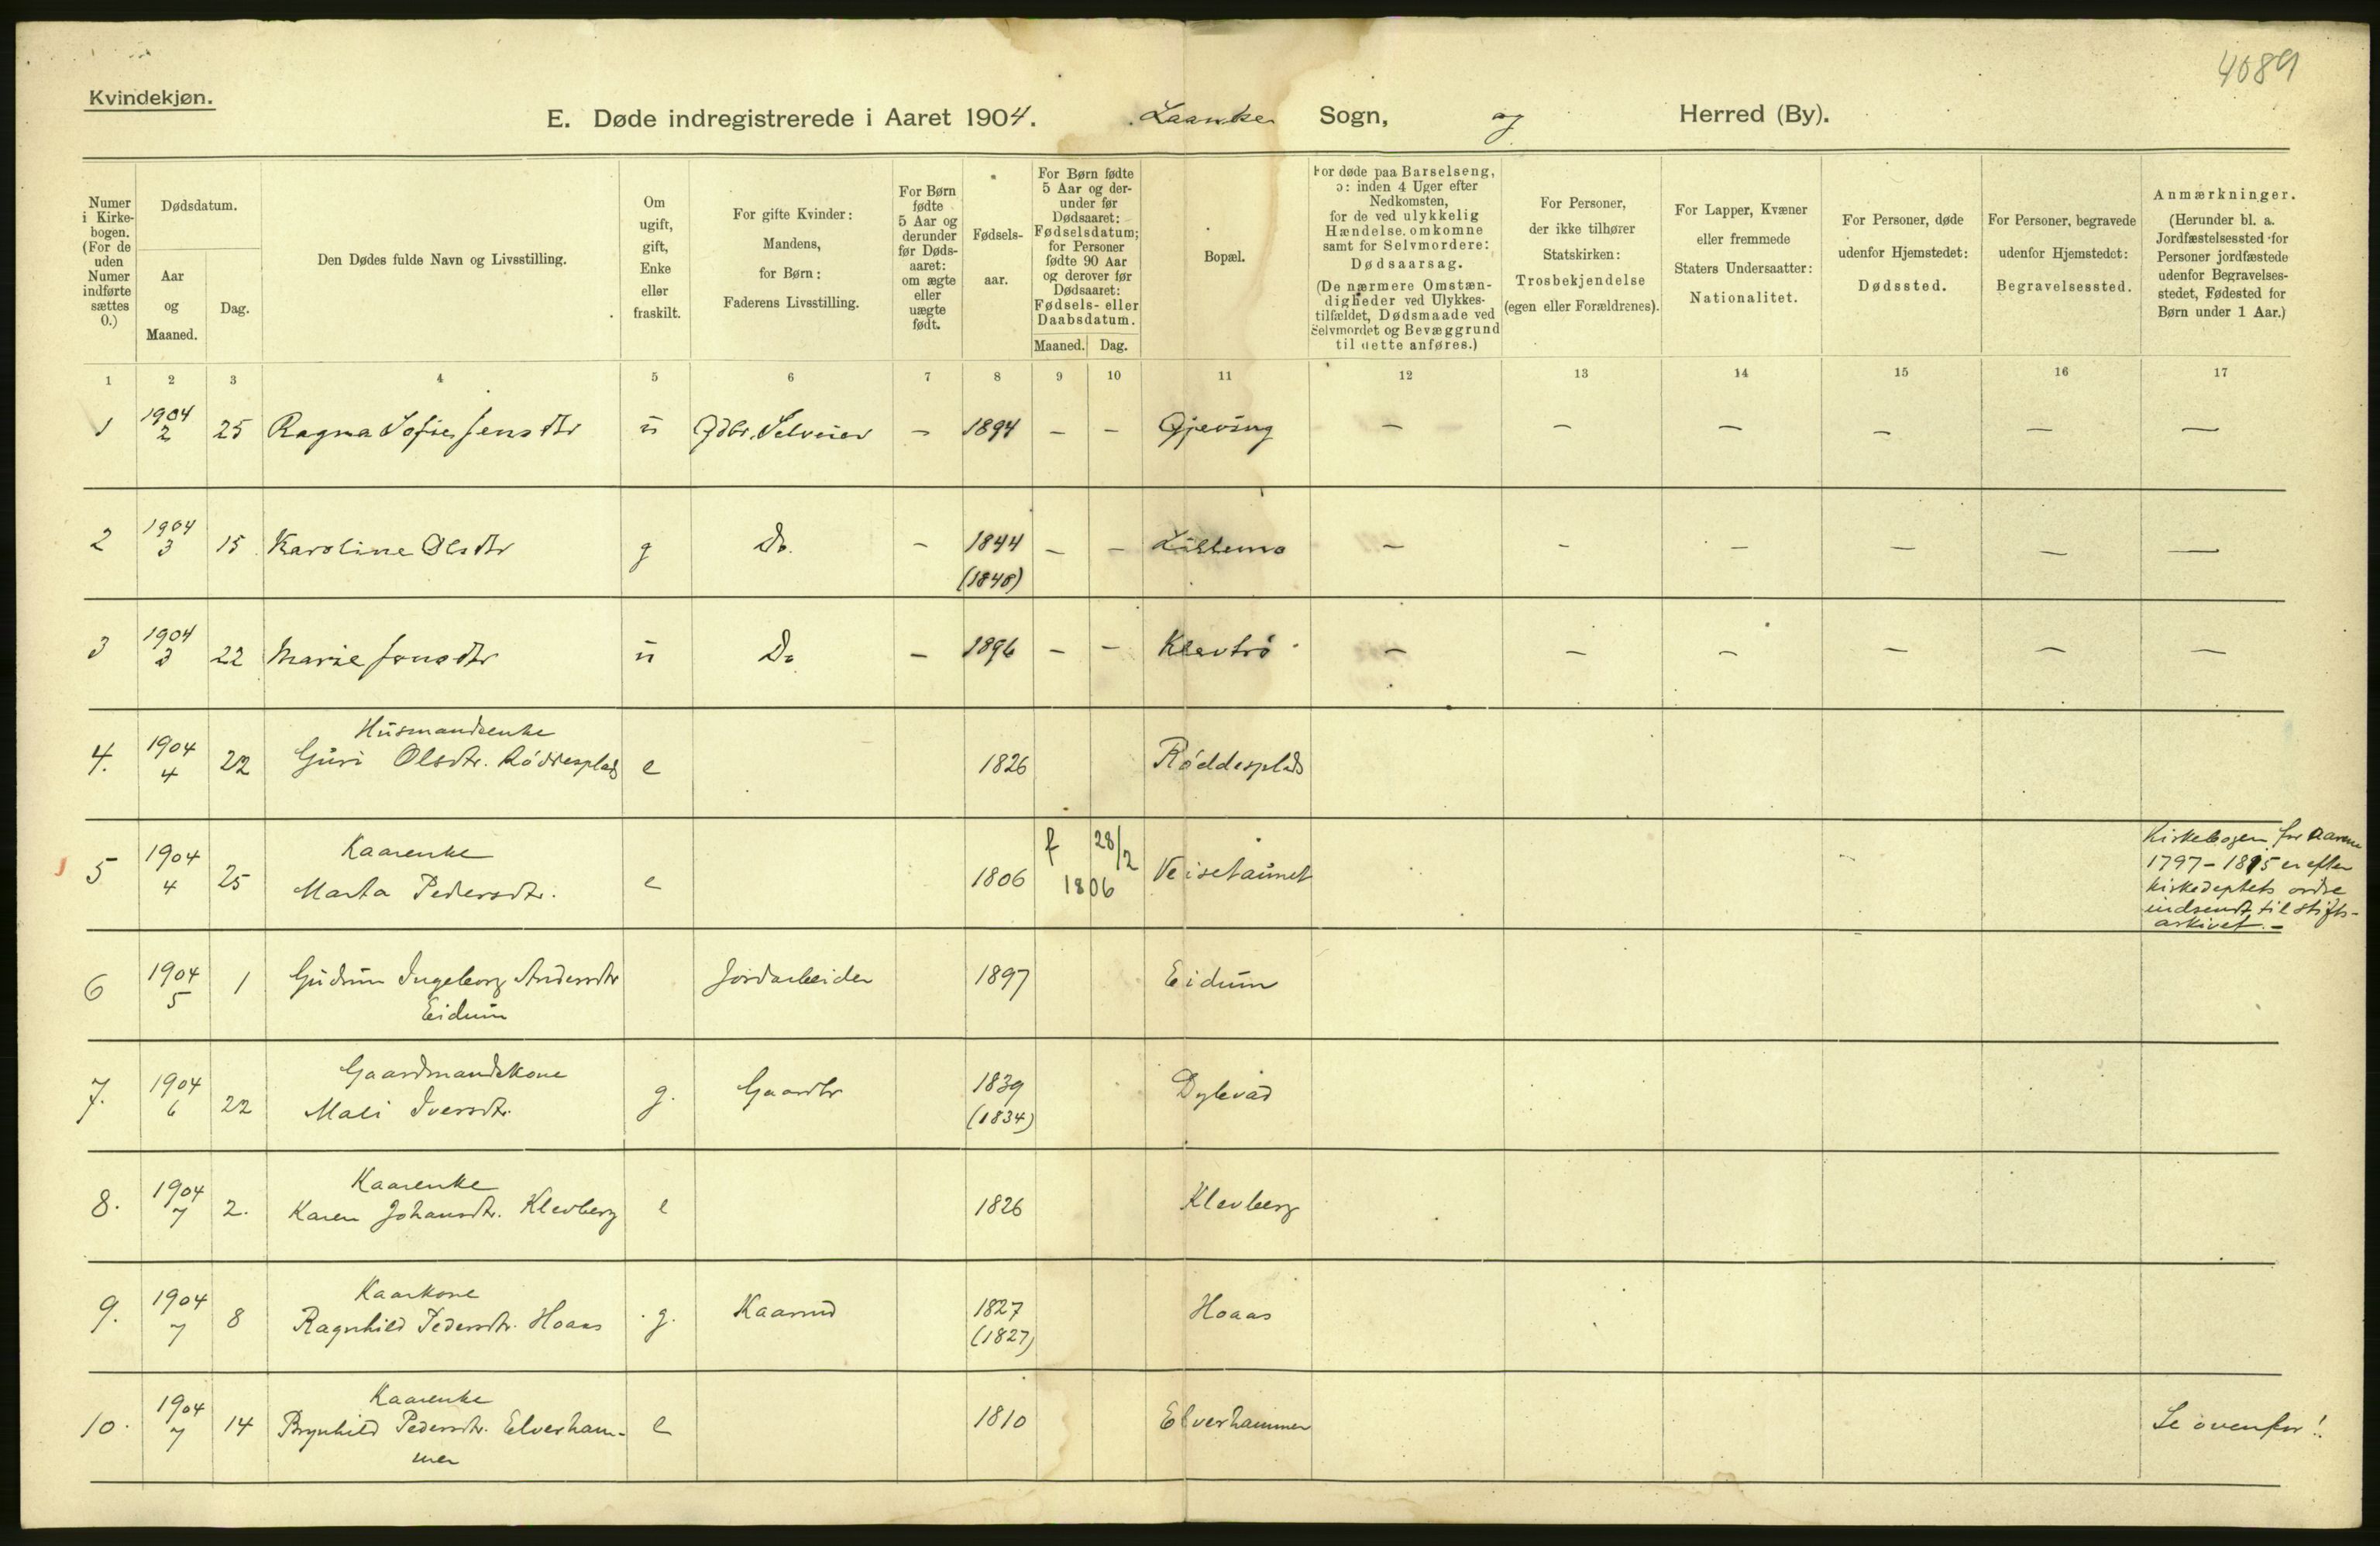 4089
Kvindekjøn.
E. Døde indregistrerede i Aaret 1904. Laanke Sogn, og Herred (By).
Numer i Kirkebogen. (For de uden Numer indførte sættes 0.)
Dødsdatum.
Aar og Maaned.
Dag.
Den Dødes fulde Navn og Livsstilling.
Om ugift, gift, Enke eller fraskilt.
For gifte Kvinder: Mandens, for Børn: Faderens Livsstilling.
For Børn fødte 5 Aar og derunder før Dødsaaret: om ægte eller uægte født.
Fødselsaar.
For Børn fødte 5 Aar og derunder før Dødsaaret: Fødselsdatum; for Personer fødte 90 Aar og derover før Dødsaaret: Fødsels- eller Daabsdatum.
Maaned. Dag.
Bopæl.
For døde paa Barselseng, ɔ: inden 4 Uger efter Nedkomsten, for de ved ulykkelig Hændelse omkomne samt for Selvmordere: Dødsaarsag.
(De nærmere Omstændigheder ved Ulykkestilfældet, Dødsmaade ved Selvmordet og Bevæggrund til dette anføres.)
For Personer, der ikke tilhører Statskirken: Trosbekjendelse (egen eller Forældrenes).
For Lapper, Kvæner eller fremmede Staters Undersaatter: Nationalitet.
For Personer, døde udenfor Hjemstedet: Dødssted.
For Personer, begravede udenfor Hjemstedet: Begravelsessted.
Anmærkninger.
(Herunder bl. a. Jordfæstelsessted for Personer jordfæstede udenfor Begravelsesstedet, Fødested for Børn under 1 Aar.)
1 2 3 4 5 6 7 8 9 10 11 12 13 14 15 16 17
1 1904 2 25 Ragna Sofie Jensdtr u Gdbr. Selveier – 1894 – – Gjeving – – – – – –
2 1904 3 15 Karoline Olsdtr g Do. – 1844 – – Lillemo – – – – – –
(1840)
3 1904 3 22 Marie Jonsdtr u Do – 1896 – – Klevtrø – – – – – –
Husmandsenke
4. 1904 4 22 Guri Olsdtr. Røddesplads e 1826 Røddesplads
Kaarenke
5 1904 4 25 Marta Pedersdtr. e 1806 f 28/2 1806 Veisetaunet
Kirkebogen for Aarene
1797-1815 er efter
kirkedeptets ordre
indsendt til stifts-
arkivet.-
6 1904 5 1 Gudrun Ingeborg Andersdtr Jordarbeider 1897 Eidum
Eidum
Gaardmandskone
7. 1904 6 22 Mali Iversdtr. g. Gaardbr 1839 Dylevad
(1834)
Kaarenke
8. 1904 7 2. Karen Johansdtr. Klevberg e 1826 Klevberg
Kaarkone
9. 1904 7 8 Ragnhild Pedersdtr. Hoaas g. Kaarmd 1827 Hoaas
(1827)
Kaarenke
10. 1904 7 14 Brynhild Pedersdtr. Elverham- e 1810 Elverhammer Se ovenfor!
mer